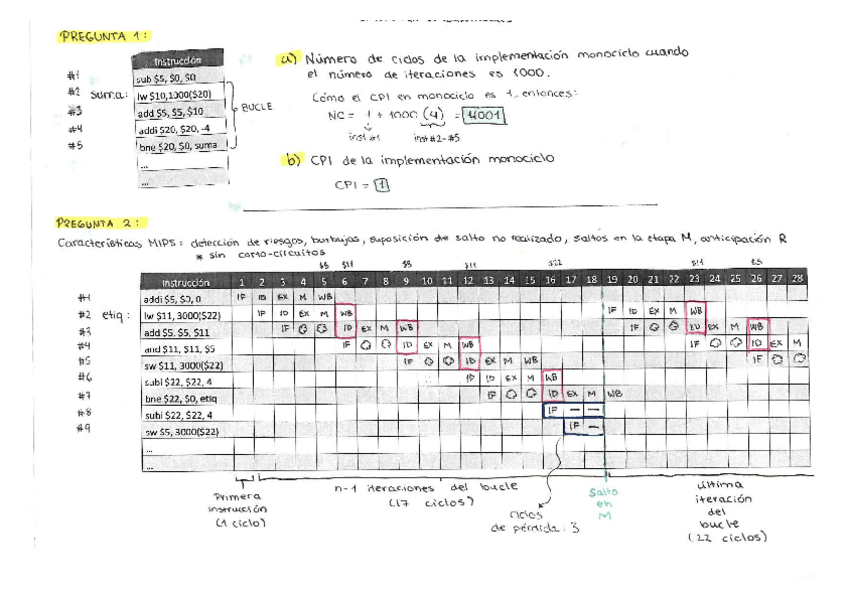 PREGUNTA 1:
Instrucción
#1 sub $5, $0, $0
#2 suma: lw $10,1000($20)
#3 add $5, $5, $10
#4 addi $20, $20, -4
#5 bne $20, $0, suma
...
...
BUCLE
a) Número de ciclos de la implementación monociclo cuando
el número de iteraciones es 1000.
Cómo el CPI en monociclo es 1, entonces:
NC = 1 + 1000 (4) = 4001
inst #1 inst #2-#5
b) CPI de la implementación monociclo
CPI = 1
PREGUNTA 2:
Características MIPS: detección de riesgos, burbujas, suposición de salto no realizado, saltos en la etapa M, anticipación R
* sin corto-circuitos
$5 $11 $5 $11 $22 $11 $5
Instrucción 1 2 3 4 5 6 7 8 9 10 11 12 13 14 15 16 17 18 19 20 21 22 23 24 25 26 27 28
#1 addi $5, $0, 0 IF ID EX M WB
#2 etiq: lw $11, 3000($22) IF ID EX M WB IF ID EX M WB
#3 add $5, $5, $11 IF ID EX M WB IF ID EX M WB
#4 and $11, $11, $5 IF ID EX M WB IF ID EX
#5 sw $11, 3000($22) IF ID EX M WB IF
#6 subi $22, $22, 4 ID ID EX M WB
#7 bne $22, $0, etiq IF ID EX M WB
#8 subi $22, $22, 4 IF — —
#9 sw $5, 3000($22) IF —
...
...
Primera
instrucción
(1 ciclo)
n-1 iteraciones del bucle
(17 ciclos)
ciclos
de pérdida: 3
Salto
en
M
última
iteración
del
bucle
(22 ciclos)